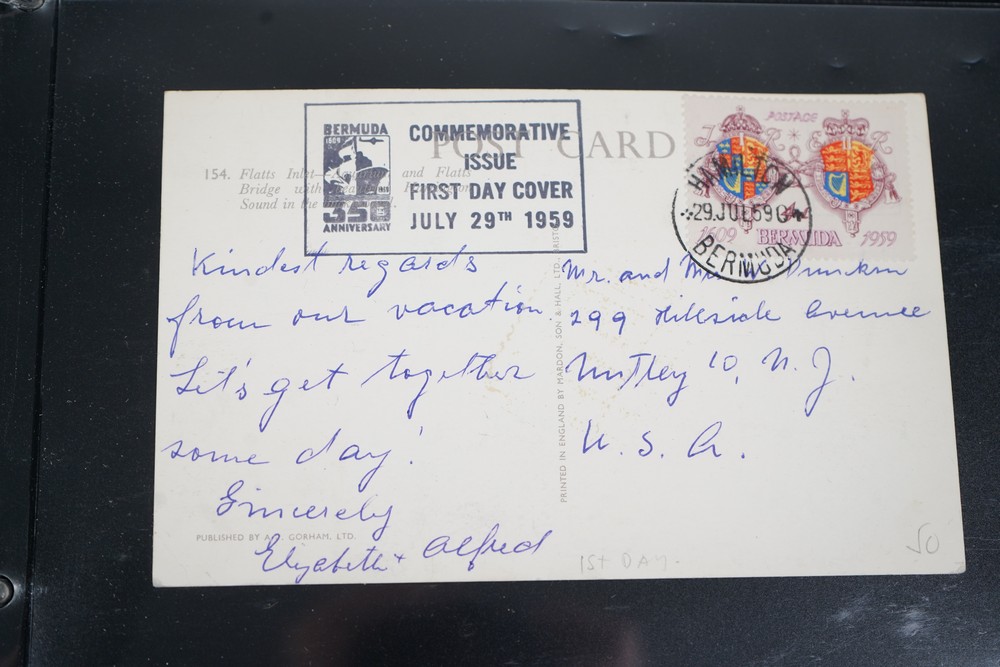 POST CARD
154. Flatts Inlet— and Flatts
Bridge with
Sound in the
BERMUDA
1609
350
ANNIVERSARY
COMMEMORATIVE
ISSUE
FIRST DAY COVER
JULY 29TH 1959
POSTAGE
1609 BERMUDA 1959
HAMILTON
29 JUL 59
BERMUDA
Kindest regards
from our vacation.
Let's get together
some day!
Sincerely
Elizabeth + Alfred
Mr. and Mrs.
299 Hillside Avenue
Nutley 10, N. J.
U. S. A.
PRINTED IN ENGLAND BY MARDON, SON & HALL, LTD., BRISTOL
PUBLISHED BY A. J. GORHAM, LTD.
1st DAY.
50